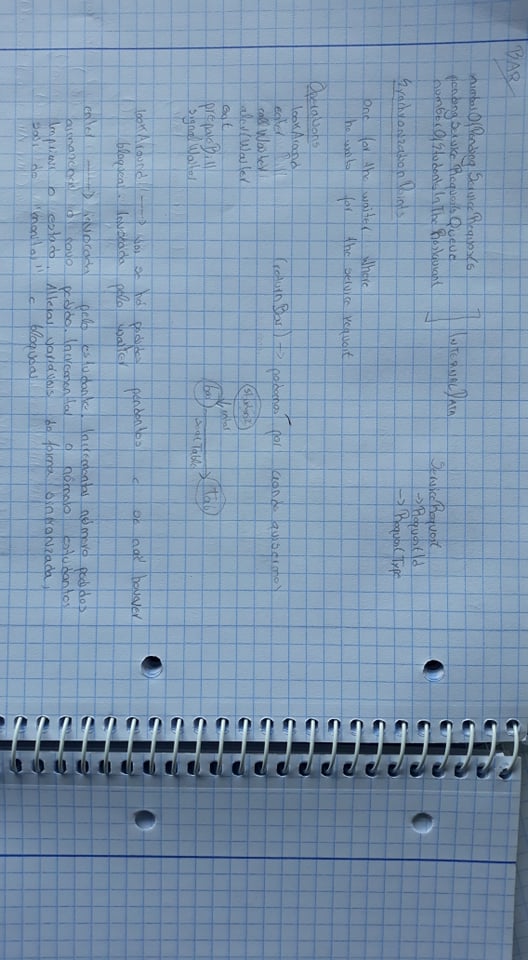 BAR
number Of Pending Service Requests
pending Service Requests Queue
number Of Students In The Restaurant
INTERNAL DATA
Service Request
→ Request Id
→ Request Type
Synchronization Points
One for the waiter where
he waits for the service request
Operations
lookAround
enter
callWaiter
alertWaiter
exit
prepareBill
signalWaiter
(returnBar) → podemos por quando quisermos
student
enter
bar
seatTable
lookAround → vai se há pedidos pendentes e se não houver
bloqueia. Invocada pelo waiter
enter → invocada pelo estudante. Incrementa número pedidos
armazenar id novo pedido. Incrementar o número estudantes
Imprimir o estado. Alterar variáveis de forma sincronizada,
sair do "monitor" e bloquear